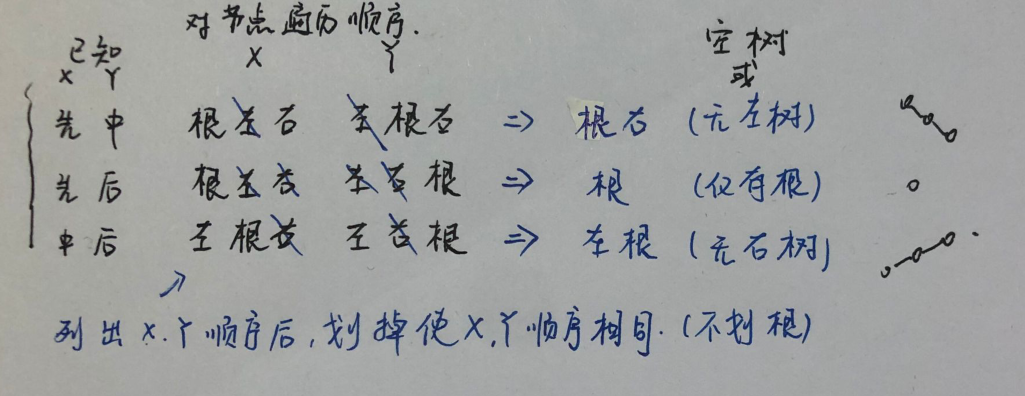 对节点遍历顺序.
已知 空树
X Y X Y 或
先中 根左右 左根右 => 根右 (无左树)
先后 根左右 左右根 => 根 (仅有根)
中后 左根右 左右根 => 左根 (无右树)
列出X.Y顺序后,划掉使X,Y顺序相同.(不划根)